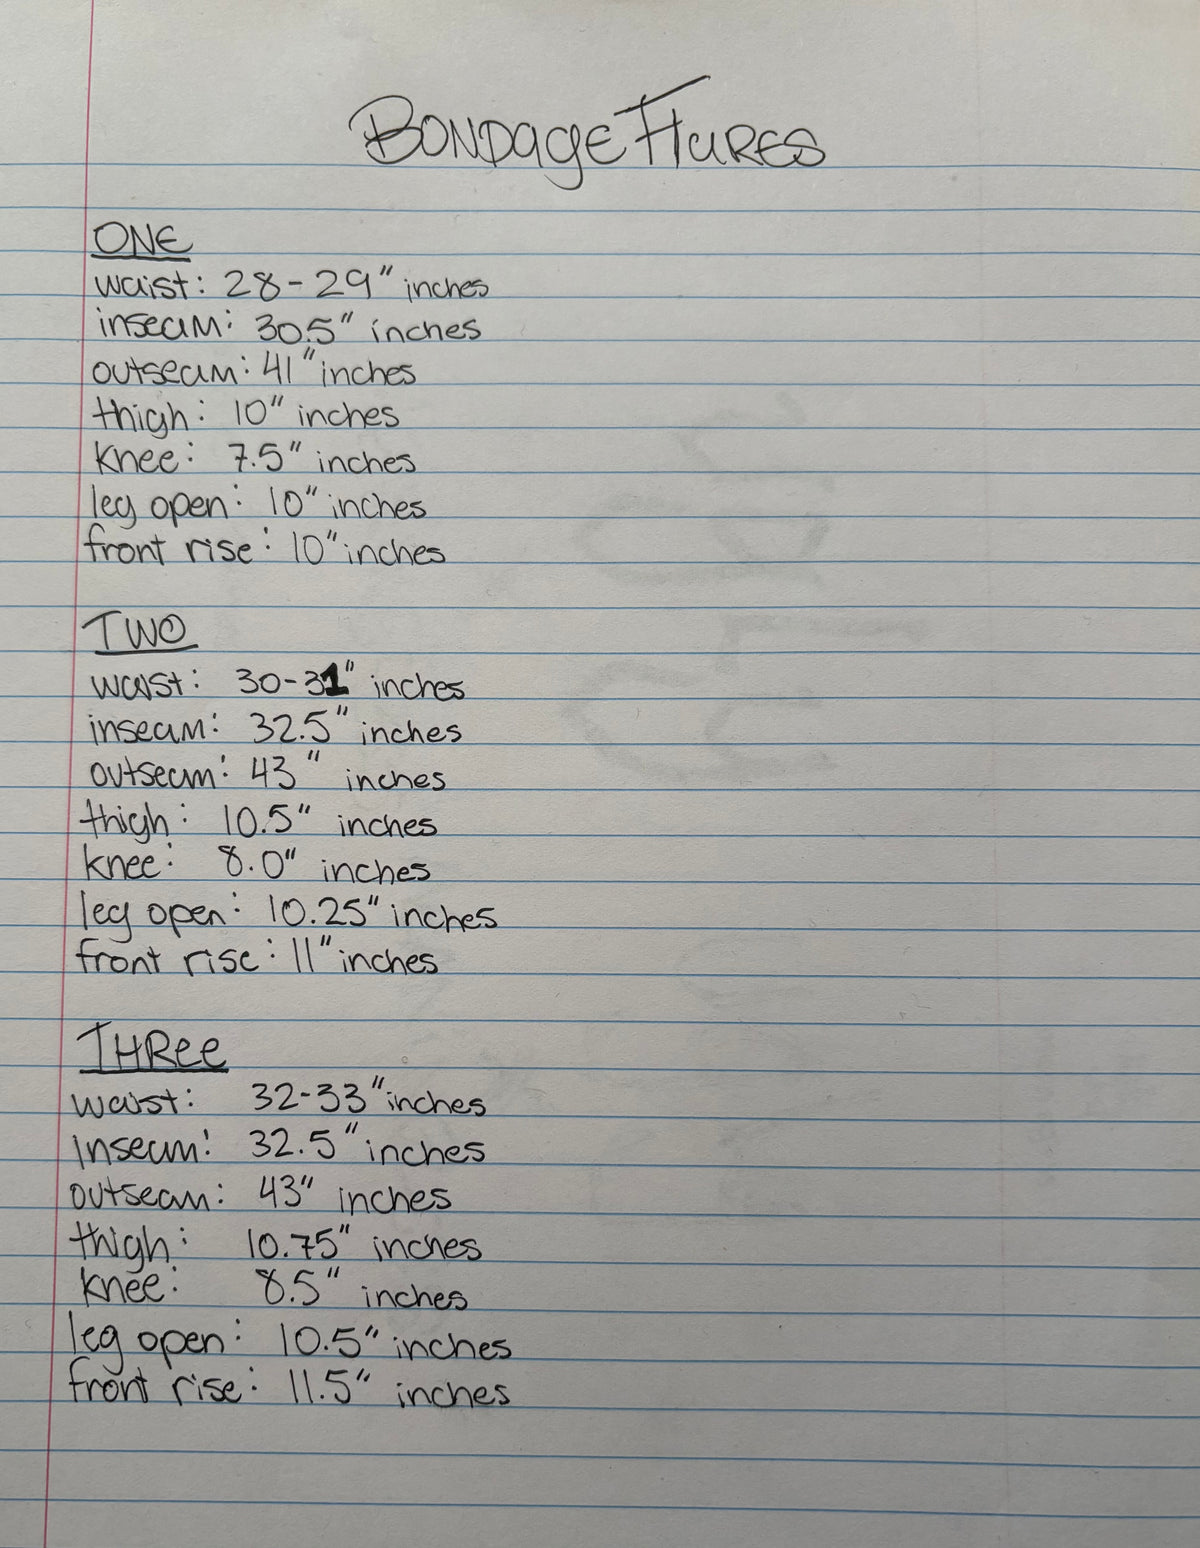 BONDAGE FLARES
ONE
waist: 28-29" inches
inseam: 30.5" inches
outseam: 41" inches
thigh: 10" inches
knee: 7.5" inches
leg open: 10" inches
front rise: 10" inches
TWO
waist: 30-31" inches
inseam: 32.5" inches
outseam: 43" inches
thigh: 10.5" inches
knee: 8.0" inches
leg open: 10.25" inches
front rise: 11" inches
THRee
waist: 32-33" inches
Inseam: 32.5" inches
outseam: 43" inches
thigh: 10.75" inches
knee: 8.5" inches
leg open: 10.5" inches
front rise: 11.5" inches